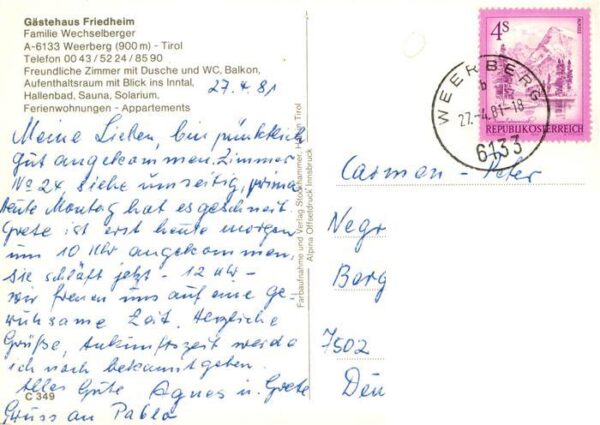 Gästehaus Friedheim
Familie Wechselberger
A-6133 Weerberg (900 m) - Tirol
Telefon 00 43 / 52 24 / 85 90
Freundliche Zimmer mit Dusche und WC, Balkon,
Aufenthaltsraum mit Blick ins Inntal,
Hallenbad, Sauna, Solarium.
Ferienwohnungen - Appartements
27.4.81
Meine Lieben, bin pünktlich
gut angekommen. Zimmer
No 24, siehe umseitig, prima
heute Montag hat es geschneit.
Grete ist erst heute morgen
um 10 Uhr angekommen,
sie schläft jetzt - 12 Uhr -
wir freuen uns auf eine ge-
ruhsame Zeit. Herzliche
Grüße, Ankunftszeit werde
ich noch bekanntgeben.
Alles Gute Agnes u. Grete
Gruss an Pablo
C 349
Farbaufnahme und Verlag Stockhammer, Hall in Tirol
Alpina Offsetdruck Innsbruck
4S
REPUBLIK ÖSTERREICH
WEERBERG
b
27.-4.81-18
6133
Carmen - Peter
Negr
Borg
7502
Den